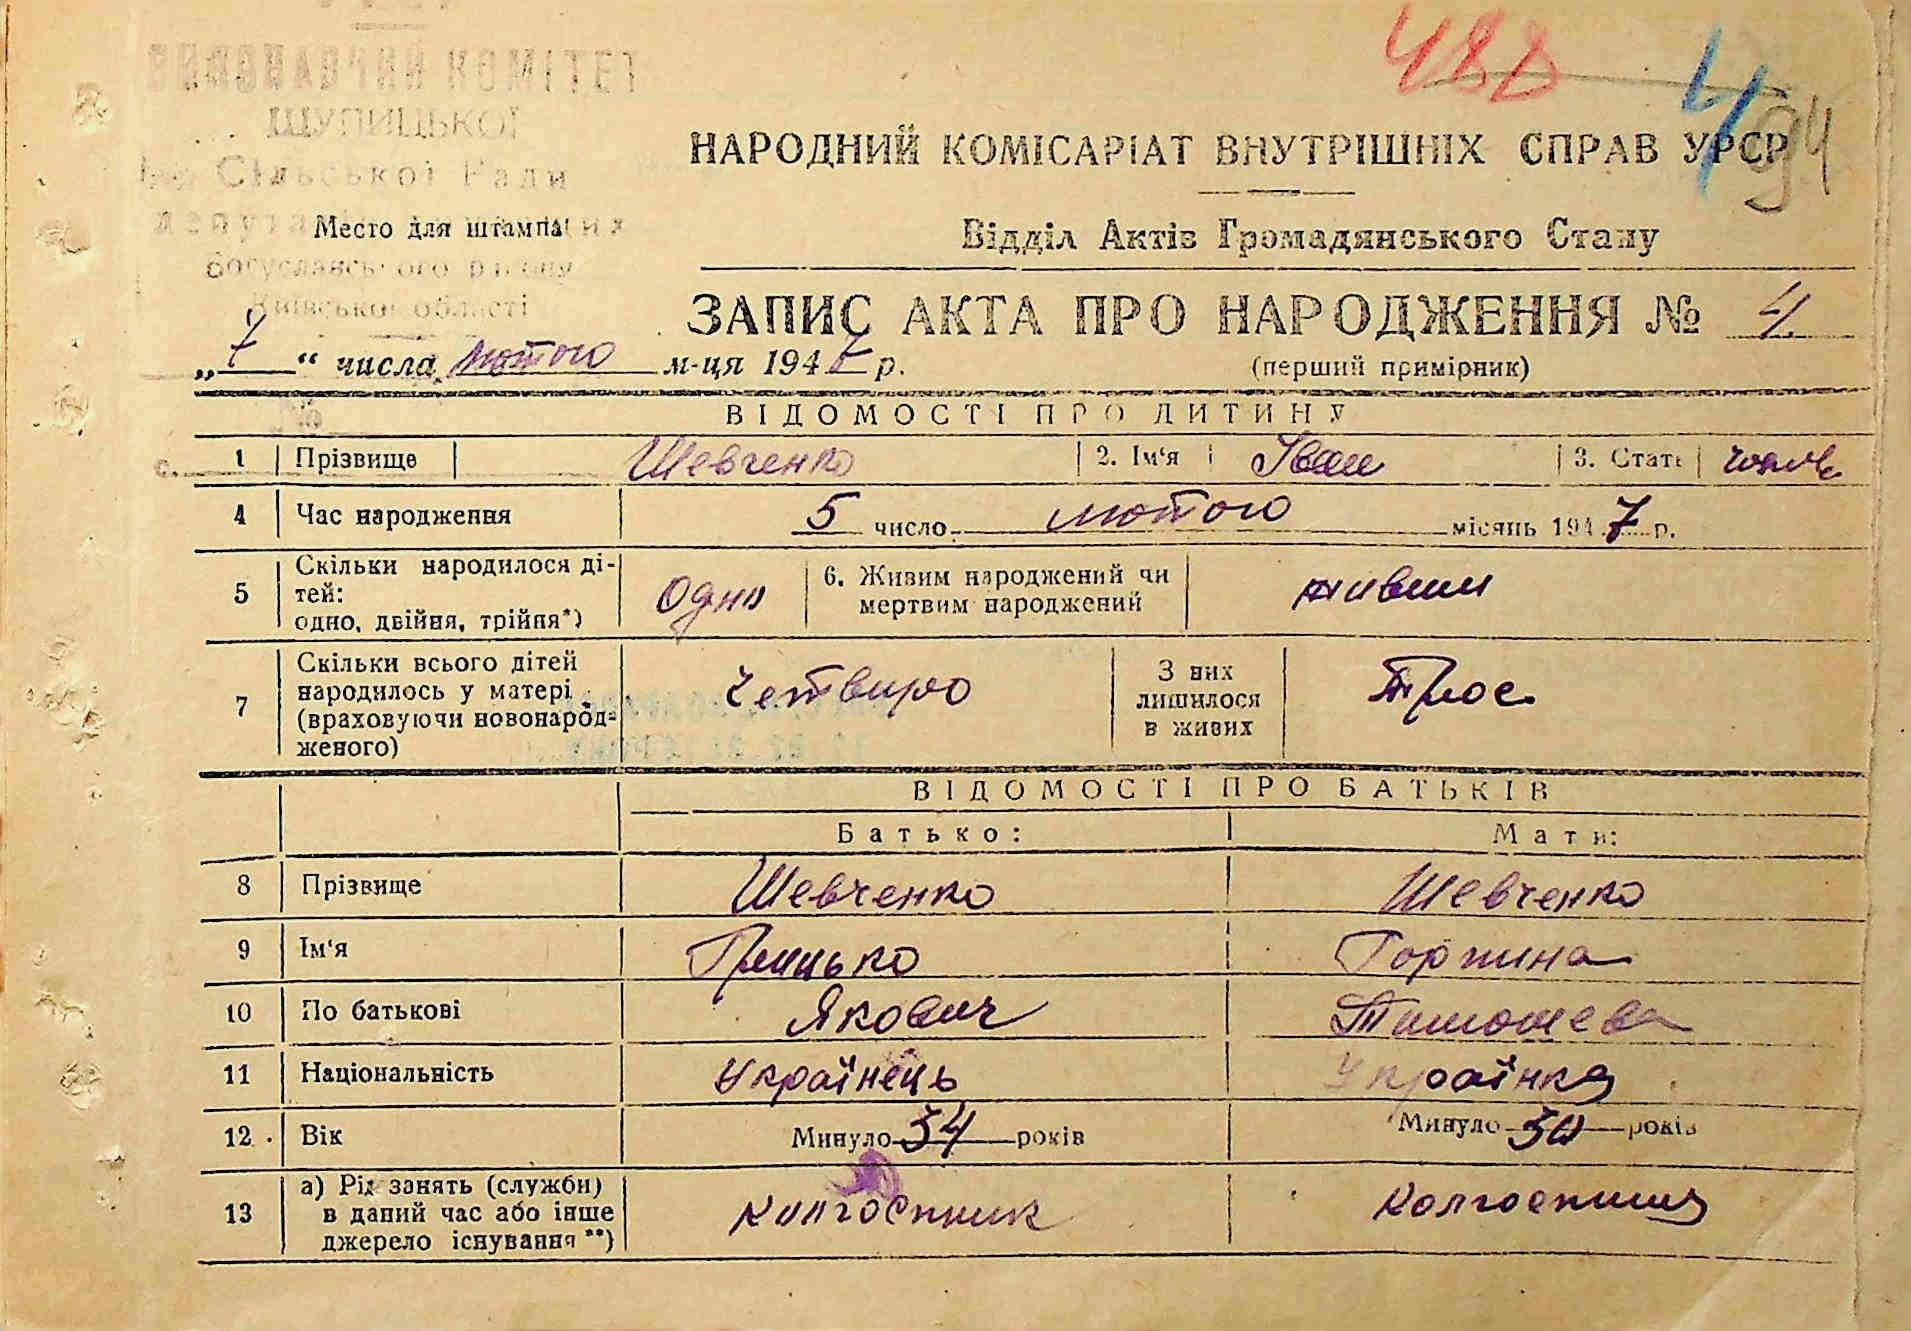 488
4
94
ВИКОНАВЧИЙ КОМІТЕТ
ЩУПИЦЬКОЇ
Сільської Ради
Богуславського району
Київської області
Место для штампа
НАРОДНИЙ КОМІСАРІАТ ВНУТРІШНІХ СПРАВ УРСР
Відділ Актів Громадянського Стану
ЗАПИС АКТА ПРО НАРОДЖЕННЯ № 4
„7“ числа лютого м-ця 1947 р.
(перший примірник)
ВІДОМОСТІ ПРО ДИТИНУ
1 Прізвище Шевченко 2. Ім‘я Іван 3. Стать чолов
4 Час народження 5 число лютого місяць 1947 р.
5 Скільки народилося ді-
тей:
одно, двійня, трійня*) одно 6. Живим народжений чи
мертвим народжений живим
7 Скільки всього дітей
народилось у матері
(враховуючи новонарод-
женого) четверо З них
лишилося
в живих трое
ВІДОМОСТІ ПРО БАТЬКІВ
Батько: Мати:
8 Прізвище Шевченко Шевченко
9 Ім‘я Грицько Горпина
10 По батькові Якович Тимошева
11 Національність Українець Українка
12 Вік Минуло 34 років Минуло 30 років
13 а) Рід занять (служби)
в даний час або інше
джерело існування **) колгоспник колгоспниця